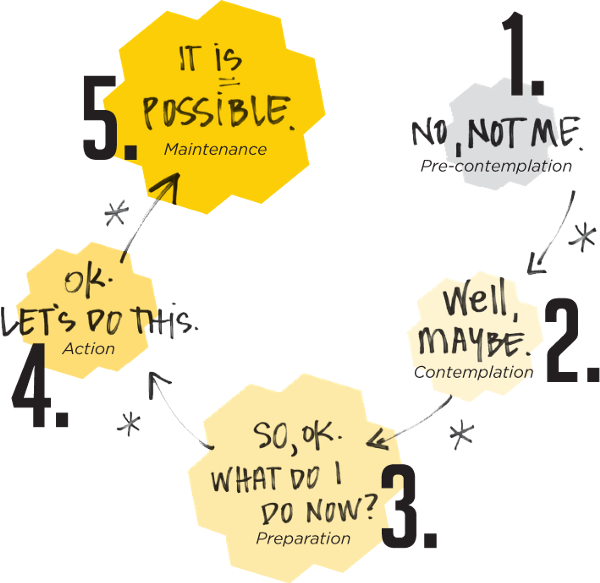 1.
NO, NOT ME.
Pre-contemplation
*
Well,
MAYBE.
Contemplation
2.
*
SO, OK.
WHAT DO I
DO NOW?
Preparation
3.
*
OK.
LET'S DO THIS.
Action
4.
*
IT IS
POSSIBLE.
Maintenance
5.